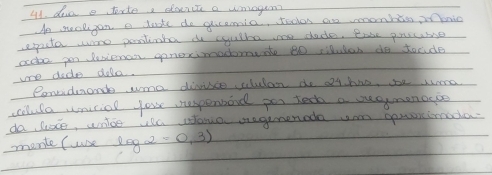 41. Leia o texto e observe a imagem:
Ao realizar o teste de glicemia, todas as manhãs, Maria
espeta uma pontinha de agulha no dedo. Esse processo
acaba por lesionar aproximadamente 80 células do tecido
no dedo dela.
Considerando uma divisão celular de 24 hrs, se uma
célula inicial fosse responsável por toda a regeneração
da lesão, então ela estaria regenerada em aproximada-
mente (use log 2 = 0,3)